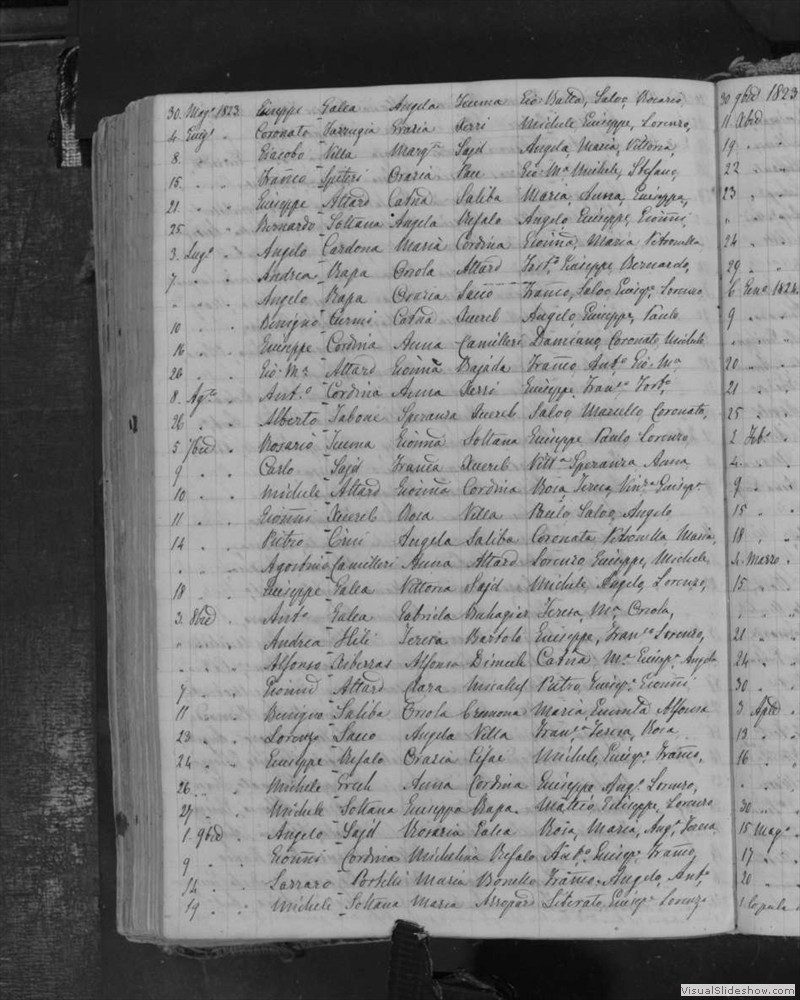 30. Mag.º 1823 Giuseppe Galea Angela Teuma Gio Batta, Salvo, Rosario,
4 Giug.º " Coronato Farrugia Grazia Xerri Michele Giuseppe, Lorenzo,
8. " Giacobo Vella Marg.ta Sajd Angela, Maria, Vittoria,
15. " Franco Spiteri Grazia Gio M.a Michele, Stefano,
21 " Giuseppe Attard Catña Saliba Maria, Anna, Giuseppa,
25 " Bernardo Soltana Angela Refalo Angelo Giuseppe, Gioñni
3. Lug.º " Angelo Cardona Maria Cordina Gioñna, Maria Petronilla
7 " Andrea Rapa Orsola Attard Fort.º Giuseppe Bernardo,
" " Angelo Rapa Grazia Franco, Salvo Giusep.e Lorenzo
10 " Benigno Curmi Catña Xuereb Angelo, Giuseppe, Paulo
16 " Giuseppe Cordina Anna Camilleri Damiano, Coronato Michele
26 " Gio M.a Attard Gioñna Bajada Franco, Ant.º Gio M.a
8. Ag.to " Ant.º Cordina Anna Xerri Giuseppe Fran.co Fort.º
26 " Alberto Tabone Speranza Xuereb Salvo, Marcello Coronato,
5 7bre " Rosario Teuma Gioñna Soltana Giuseppe Paulo Lorenzo
9 " Carlo Sajd Franca Xuereb Vitt.a Speranza Anna
10 " Michele Attard Gioñna Cordina Rosa, Teresa, Vin.za Giusep.e
11 " Gioñni Xuereb Rosa Vella Paulo Salvo, Angelo
14 " Pietro Cini Angela Saliba Coronata, Petronilla Maria,
" " Agostino Camilleri Anna Attard Lorenzo, Giuseppe, Michele
18 " Giuseppe Galea Vittoria Sajd Michele Angelo, Lorenzo,
3. 8bre Ant.º Galea Gabriela Buhagiar Teresa, M.a, Orsola,
" " Andrea Hili Teresa Bartolo Giuseppe, Fran.co Lorenzo,
" " Alfonso Dimech Catña M.a Giusep.a Angela
7 " Gioñni Attard Clara Micallef Pietro, Giusep.e Gioñni
11 " Benigno Saliba Orsola Cremona Maria, Alfonsa
23 " Lorenzo Angela Vella Fran.ca Teresa, Rosa
24 " Giuseppe Refalo Grazia Michele, Giusep.e Franco,
26 " Michele Grech Anna Cordina Giuseppe Ang.º Lorenzo,
27 " Michele Soltana Giuseppa Rapa Matteo, Giuseppe, Lorenzo
1. 9bre " Angelo Sajd Rosaria Galea Rosa, Maria, Ang.a Teresa
9 " Gioñni Cordina Michelina Refalo Ant.º Giusep.e Franco,
12 " Lazzaro Portelli Maria Bonello Franco, Angelo, Ant.º
19 " Michele Soltana Maria Liberato, Giusep.e Lorenzo
30 9bre 1823
11 Xbre
19 "
22 "
23 "
" "
24 "
29 "
6 Geno 1824.
9 "
20 "
21 "
25 "
2 Feb.º
4 "
9 "
15 "
18 "
4 Marzo
15 "
21 "
24 "
30 "
3 Aple
13 "
16 "
30 "
15 Mag.º
17 "
20 "
VisualSlideshow.com